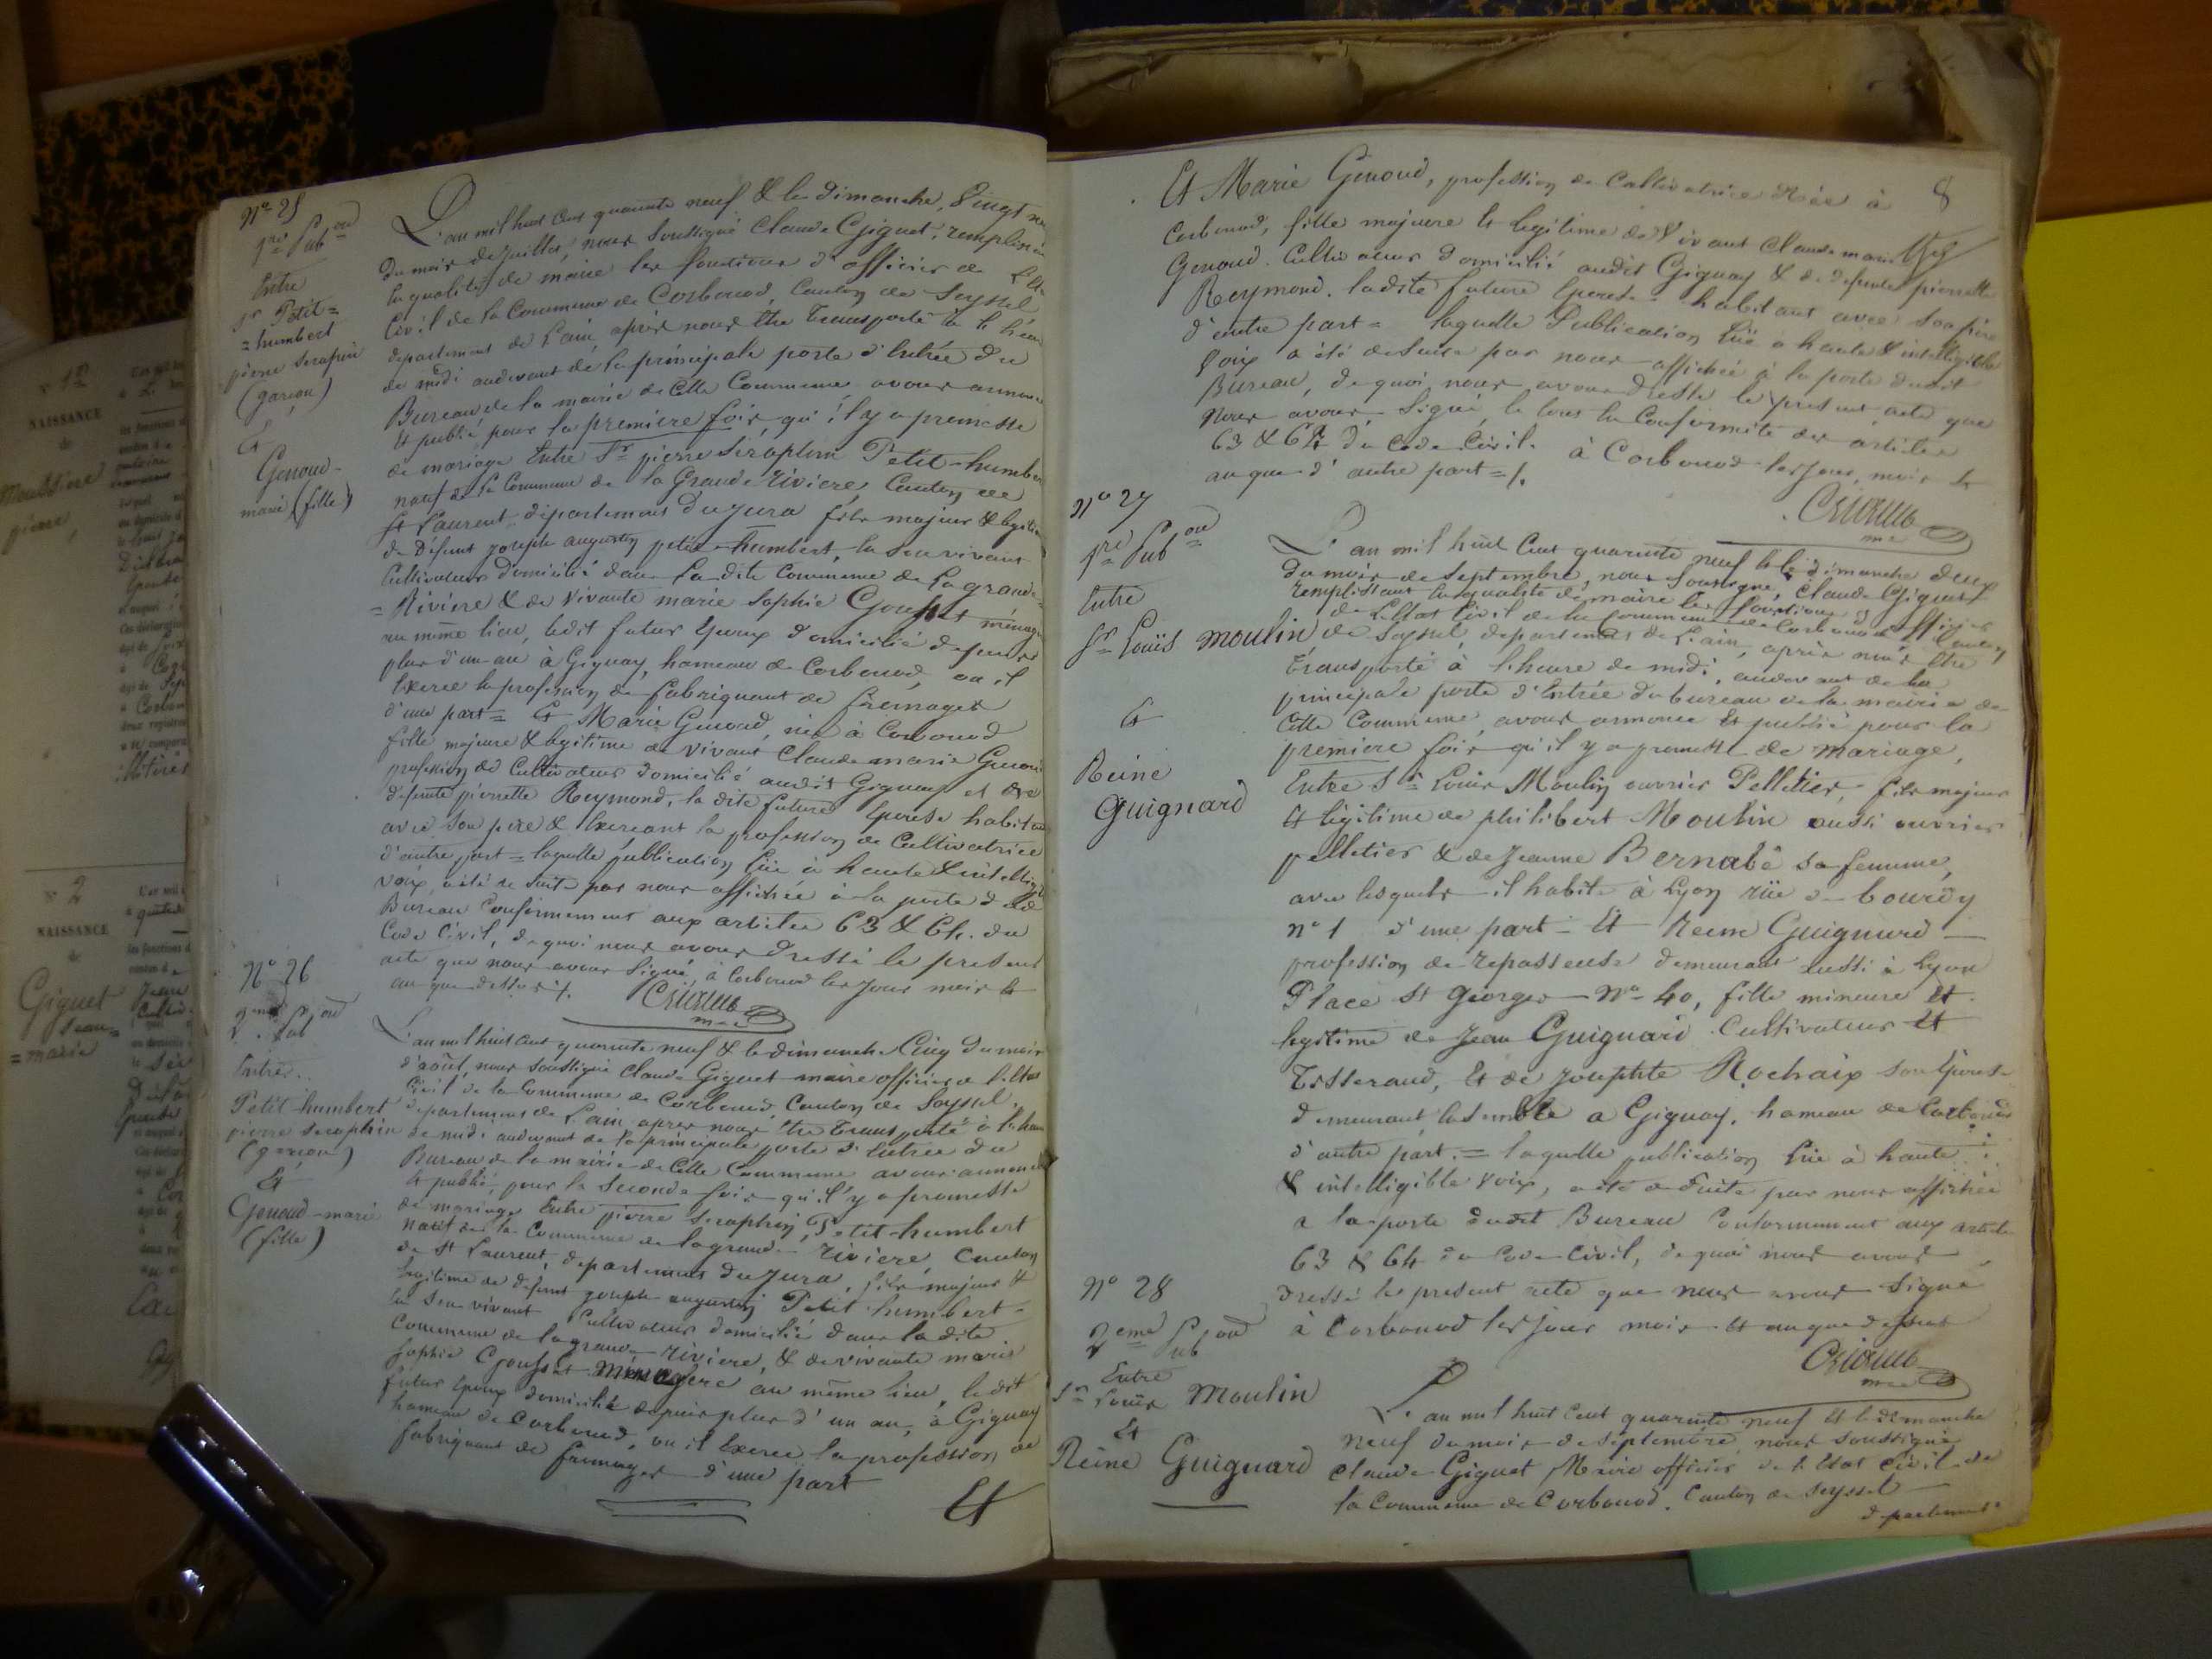 N° 25
1re Pub on
Entre
Sr Petit=
=humbert
pierre serapin
(garçon)
Et
Genoud-
marie (fille)
L'an mil huit cent quarante neuf & le dimanche, Vingt neuf
du mois de juillet, nous soussigné Claude Giguet, remplissant
la qualité de maire les fonctions d'officier de L'Etat
Civil de la Commune de Corbonod, Canton de Seyssel
departement de L'ain, après nous être transporté à l'heure
de midi audevant de la principale porte d'entrée du
Bureau de la mairie de Cette Commune avons annoncé
et publié pour la premiere fois, qu'il y a promesse
de mariage Entre Sr pierre Séraphin Petit-humbert
natif de la Commune de la Grande Riviere, Canton de
St Laurent, département du Jura fils majeur & legitime
de Défunt joseph augustin petit-humbert, la son vivant
Cultivateur domicilié dans la dite Commune de la grande
=Riviere & de vivante marie Sophie Gousset ménagere
au même lieu, ledit futur Epoux domicilié depuis
plus d'un an à Gignay, hameau de Corbonod, ou il
Exerce la profession de fabriquant de fromages
d'une part = Et Marie Genoud, née à Corbonod
fille majeure & legitime de vivant Claude marie Genoud
profession de Cultivateur domicilié audit Gignay et de
défunte pierrette Reymond, la dite future Epouse habitant
avec son pere & Exerçant la profession de Cultivatrice
d'autre part = laquelle publication lüe à haute & intelligible
voix, a été de suite par nous affichée à la porte dudit
Bureau Conformement aux articles 63 & 64 du
Code Civil, de quoi nous avons dressé le present
acte que nous avons signé, à Corbonod les jour mois &
an que dessus ./.
N° 26
2eme Pub on
Entre
Petit humbert
pierre seraphin
(garçon)
Et
Genoud-marie
(fille)
L'an mil huit cent quarante neuf & le dimanche Cinq du mois
d'août, nous soussigné Claude Giguet maire officier de l'Etat
Civil de la Commune de Corbonod, Canton de Seyssel
departement de L'ain, après nous être transporté à l'heure
de midi audevant de la principale porte d'entrée du
Bureau de la mairie de Cette Commune avons annoncé
et publié, pour la seconde fois qu'il y a promesse
de mariage Entre pierre Seraphin Petit-humbert
natif de la Commune de lagrande Riviere, Canton
de St Laurent, departement du Jura, fils majeur &
legitime de defunt joseph augustin Petit humbert
la son vivant Cultivateur domicilié dans la dite
Commune de lagrande riviere, & de vivante marie
Sophie Gousset ménagere au même lieu, ledit
futur Epoux domicilié depuis plus d'un an, à Gignay
hameau de Corbonod, ou il Exerce la profession de
fabriquant de fromages d'une part
Et
8
Et Marie Genoud, profession de Cultivatrice Née à
Corbonod, fille majeure & legitime de vivant Claude marie
Genoud. Cultivateur domicilié audit Gignay & de defunte pierrette
Reymond. ladite future Epouse habitant avec son père
d'autre part = laquelle Publication lüe à haute & intelligible
voix a été desuite par nous affichée à la porte dudit
Bureau, de quoi nous avons dressé le present acte que
Nous avons signé, le tout En Conformité des articles
63 & 64 du Code Civil. à Corbonod les jour, mois &
an que d'autre part =/.
N° 27
1re Pub on
Entre
Sr Louis Moulin
Et
Reine
Guignard
L'an mil huit Cent quarante neuf & le dimanche deux
du mois de Septembre, nous soussigné, Claude Giguet
remplissant la qualité de maire les fonctions d'officier
de L'Etat Civil de la Commune de Corbonod Canton
de Seyssel, departement de L'ain, après nous être
transporté à l'heure de midi, audevant de la
principale porte d'Entrée du bureau de la mairie de
Cette Commune, avons annoncé Et publié pour la
premiere fois qu'il y a promesse de mariage,
Entre Sr Louis Moulin ouvrier Pelletier, fils majeur
Et légitime de philibert Moulin aussi ouvrier
pelletier & de Jeanne Bernabé sa femme,
avec lesquels il habite à Lyon rüe de bourdy
n° 1 d'une part = Et Reine Guignard
profession de repasseuse demeurant aussi à Lyon
Place St Georges - N° 40, fille mineure Et
legitime de Jean Guignard Cultivateur Et
Tisserand, Et de Josephte Rochaix son Epouse
demeurant Ensemble a Gignay, hameau de Corbonod
d'autre part. = laquelle publication lüe à haute
& intelligible voix, a été de suite par nous affichée
a la porte dudit Bureau Conformement aux article
63 & 64 du Code Civil, de quoi nous avons
dressé le present acte que nous avons signé
à Corbonod les jour mois Et an que dessus
N° 28
2eme Pub on
Entre
Sr Louis Moulin
Et
Reine Guignard
L'an mil huit Cent quarante neuf Et le dimanche
neuf du mois de septembre, nous soussigné
Claude Giguet Maire officier de L'Etat Civil de
la Commune de Corbonod. Canton de Seyssel
departement
N° 1er
NAISSANCE
de
pierre
N° 2
NAISSANCE
de
Giguet
Jean=
=marie